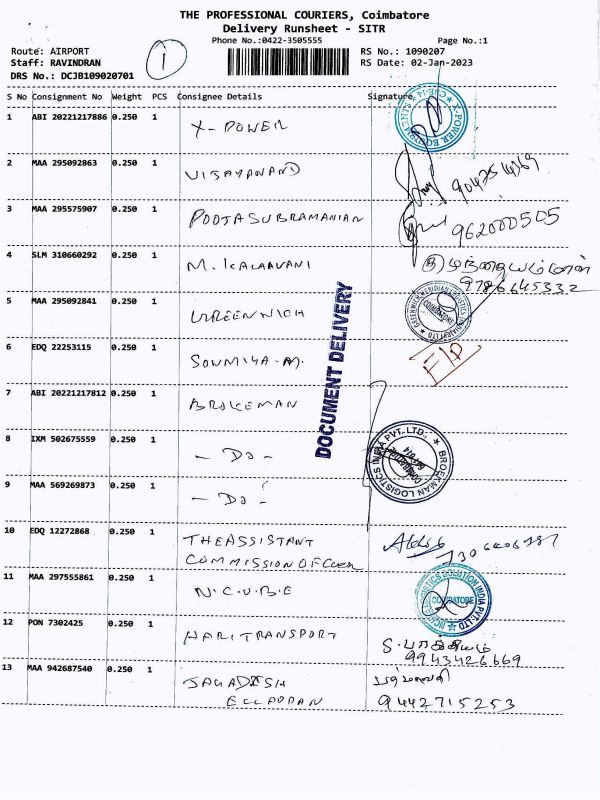 THE PROFESSIONAL COURIERS, Coimbatore
Delivery Runsheet - SITR
Phone No.:0422-3505555
Page No.:1
Route: AIRPORT
Staff: RAVINDRAN
DRS No.: DCJB109020701
1
RS No.: 1090207
RS Date: 02-Jan-2023
S No Consignment No Weight PCS Consignee Details Signature
1 ABI 20221217886 0.250 1 X-POWER
2 MAA 295092863 0.250 1 VIJAYANAND
3 MAA 295575907 0.250 1 POOJASUBRAMANIAN 962000505
4 SLM 310660292 0.250 1 M. KALAAVANI
9786645332
5 MAA 295092841 0.250 1 GREENWICH COIMBATORE
6 EDQ 22253115 0.250 1 SOWMIYA-M.
DOCUMENT DELIVERY
7 ABI 20221217812 0.250 1 BROKEMAN
8 IXM 502675559 0.250 1 - DO -
BROEKMAN LOGISTICS INDIA PVT. LTD.
9 MAA 569269873 0.250 1 - DO -
10 EDQ 12272868 0.250 1 THE ASSISTANT
COMMISSION OF
11 MAA 297555861 0.250 1 N.C.U.B.E
LOGISTICS SOLUTION INDIA PVT. LTD COIMBATORE
12 PON 7302425 0.250 1 HARI TRANSPORT
9943426669
13 MAA 942687540 0.250 1 JAGADISH
9442715253